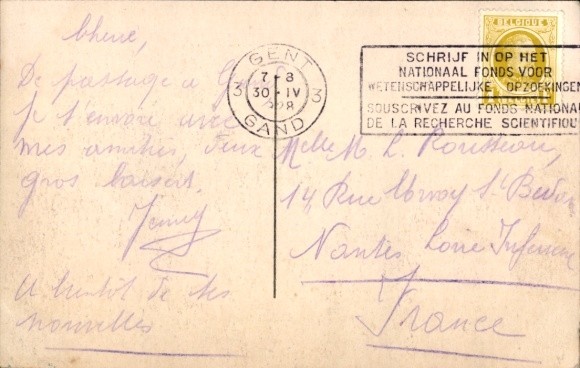 Chérie,
De passage à
je t'envoie avec
mes amitiés, deux
gros baisers.
A bientôt de tes
nouvelles
GENT
7-8
3 30-IV 3
GAND
BELGIQUE
SCHRIJF IN OP HET
NATIONAAL FONDS VOOR
WETENSCHAPPELIJKE OPZOEKINGEN
SOUSCRIVEZ AU FONDS NATIONAL
DE LA RECHERCHE SCIENTIFIQU
Melle M. L. Rousseau,
14 Rue St
Nantes Loire Inférieure
France